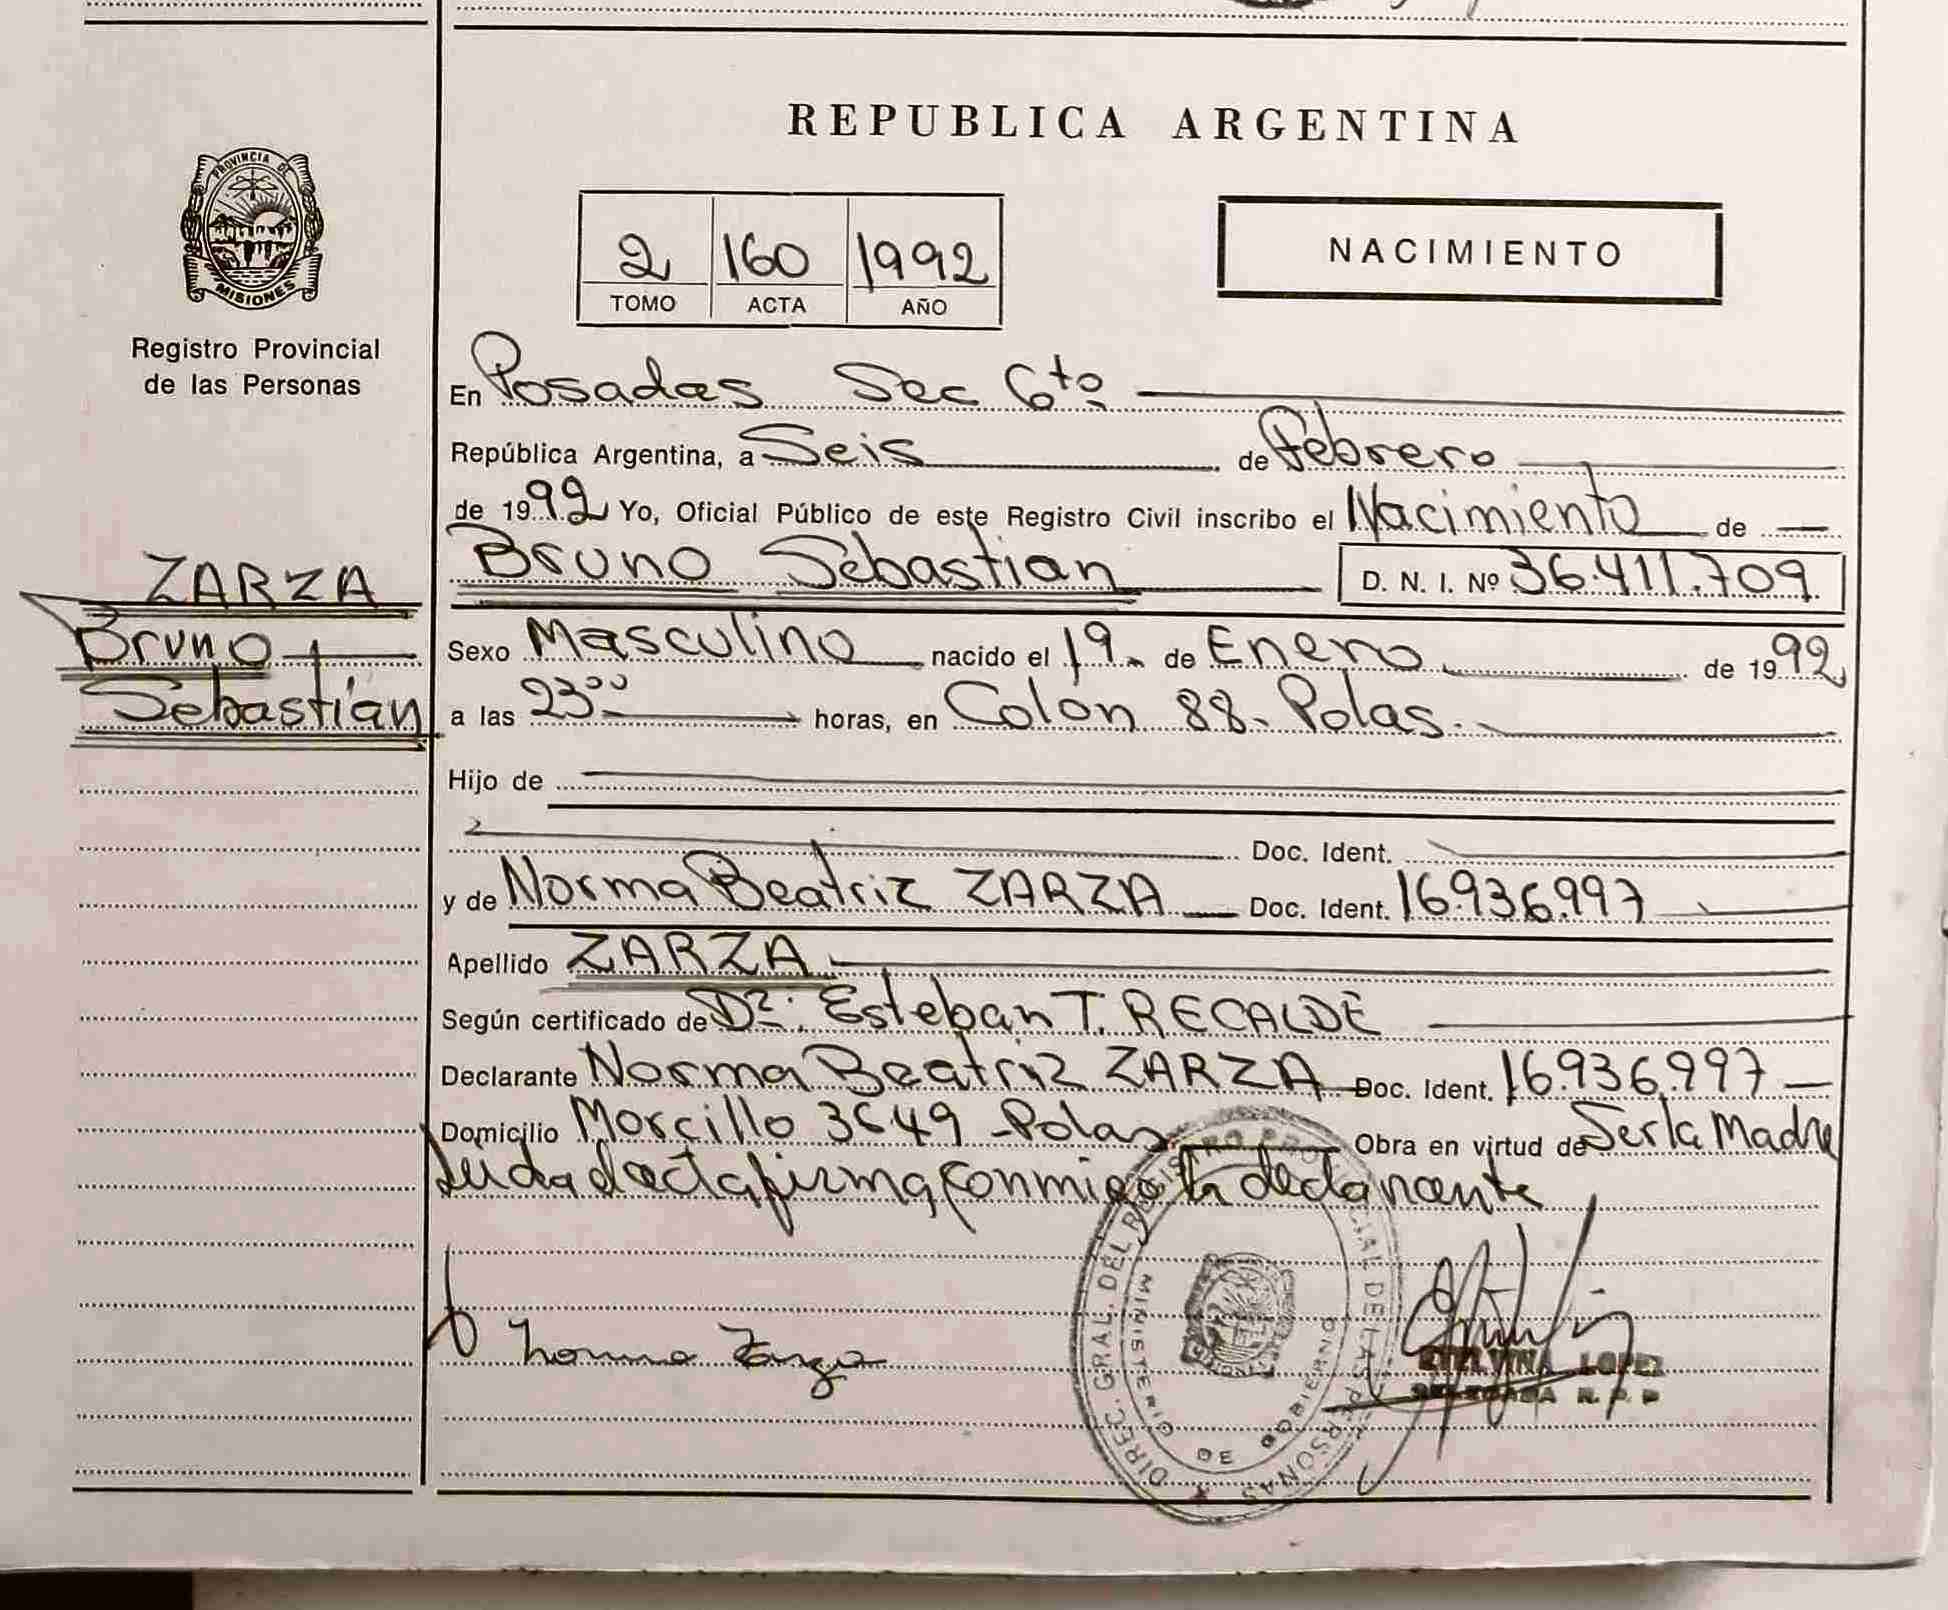 REPUBLICA ARGENTINA
PROVINCIA DE
MISIONES
Registro Provincial
de las Personas
2 160 1992
TOMO ACTA AÑO
NACIMIENTO
En Posadas Sec 6to
República Argentina, a Seis de Febrero
de 1992 Yo, Oficial Público de este Registro Civil inscribo el Nacimiento de
ZARZA
Bruno
Sebastián
Bruno Sebastian D. N. I. Nº 36.411.709
Sexo Masculino nacido el 19. de Enero de 1992
a las 23ºº horas, en Colón 88- Polas.
Hijo de
Doc. Ident.
y de Norma Beatriz ZARZA Doc. Ident. 16.936.997
Apellido ZARZA
Según certificado de Dr. Esteban T. RECALDE
Declarante Norma Beatriz ZARZA Doc. Ident. 16.936.997
Domicilio Morcillo 3649 - Polas Obra en virtud de Ser la Madre
Leida el acta firma conmigo la declarante
Norma Zarza
DIREC. GRAL. DEL REGISTRO PROVINCIAL DE LAS PERSONAS
MINISTERIO DE GOBIERNO
LOPEZ
DELEGADA R. P. P